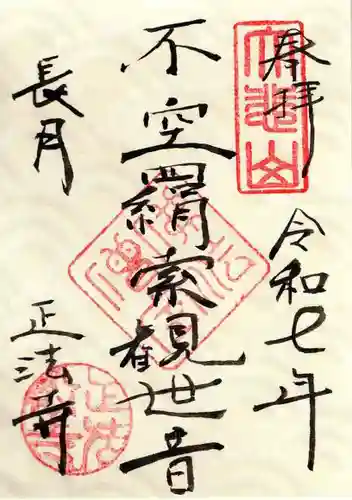 奉拝
令和七年
不空羂索観世音
長月
正法寺